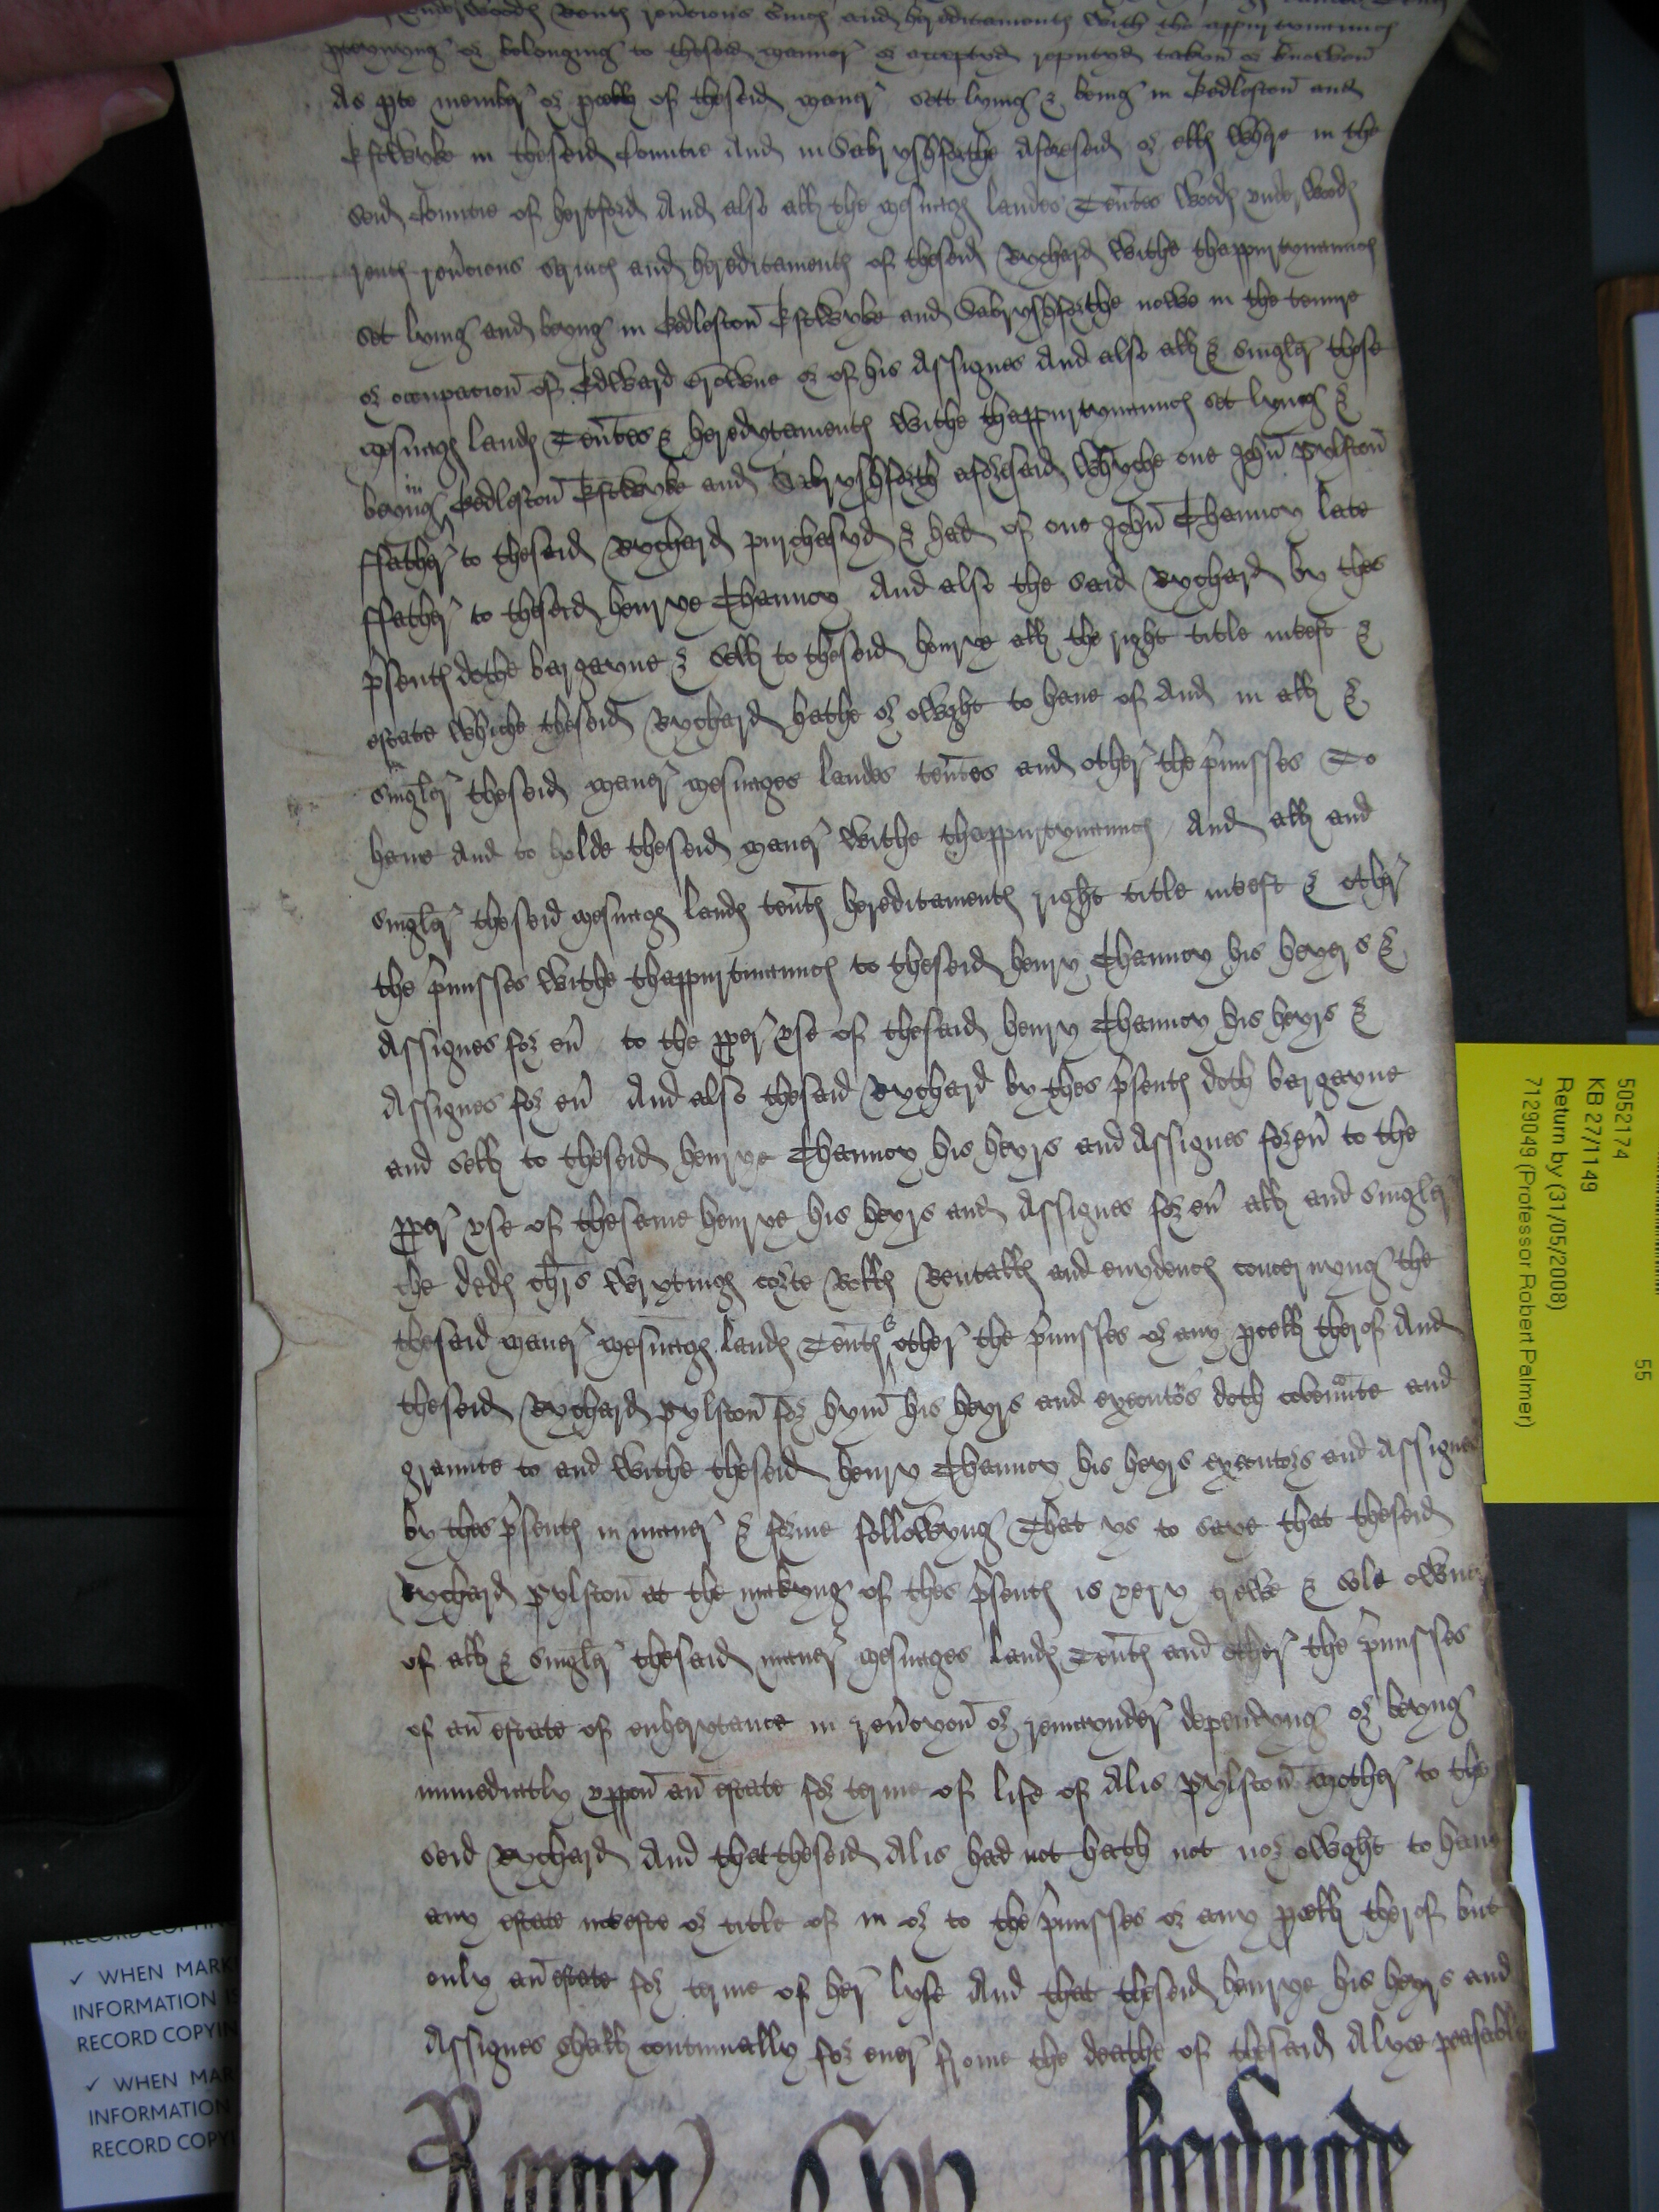 underwoodes Rentes rev̄cions s̄vices and hereditamentes with the appurtynaunces
pteynyng or belonging to theseid mannor or acceptyd reputyd takyn or knowen
As pte membr̄ or pcell of theseid maner sett lying & being in Edleston and
Estwyke in theseid Countie And in Sabryshforthe Aforeseid or ells where in the
seid Countie of hertford And also all the mesuages landes Ten̄tes woodes underwoodes
rentes rev̄cions s̄vices and hereditamentes of theseid Rychard withe thappurtynaunces
set lying and beyng in Edleston Estwyke and Sabryshforthe nowe in the tenure
or occupacion of Edward Browne or of his Assignes And also all & singler those
mesuages landes Ten̄tes & heredytamentes withe thappurtynaunces set lyng &
beyng in Edleston Estwyke and Sabryshforth aforeseid whyche one John Pylston
ffather to theseid Rychard purchasyd & had of one John Chauncy late
ffather to theseid henrye Chauncy And also the said Rychard by thes
p̄sentes dothe bargayne & sell to theseid henrye all the right title intrest &
estate whiche theseid Rychard hathe or owght to haue of And in all &
singler theseid maner mesuages landes ten̄tes and other the p̄misses To
haue And to holde theseid maner withe thappurtynaunces And all and
singler theseid mesuages landes ten̄tes hereditamentes right title intrest & other
the p̄misses withe thappurtinaunces to theseid henry Chauncy his heyers &
Assignes for eū to the pper use of thesaid henry Chauncy his heyrs &
Assignes for eū And also thesaid Rychard by thes p̄sentes doth bargayne
and sell to theseid henrye Chauncy his heyrs and Assignes for eū to the
pper use of thesame henrye his heyrs and Assignes for eū all and singler
the dedes chrēs wrytinges corte Rolls Rentalls and evydences concernyng the
theseid maner mesuages landes Ten̄tes & other the p̄misses or any pcell therof And
theseid Rychard pylston for hym his heyrs and executors doth covenñte and
graunte to and withe theseid henry Chauncy his heyrs executors and Assignes
by thes p̄sentes in maner & forme followyng That ys to saye that theseid
Rychard pylston at the makyng of thes p̄sentes is very trewe & sole owner
of all & singler thesaid maner mesuages landes Ten̄tes and other the p̄misses
of an estate of enherytance in rev̄cyon or remaynder dependyng or beyng
immediatly uppon an estate for terme of life of Alis Pylston mother to the
seid Rychard And that theseid Alis had not hath not nor owght to haue
any estate intreste or title of in or to the p̄misses or any pcell therof but
only an estate for terme of her lyfe And that theseid henrye his heyrs and
Assignes shall contynually for euer frome the deathe of thesaid Alyce peasably
5052174
KB 27/1149
Return by (31/05/2008)
7129049 (Professor Robert Palmer)
55
✓ WHEN MARK
INFORMATION
RECORD COPYIN
✓ WHEN MAR
INFORMATION
RECORD COPYI